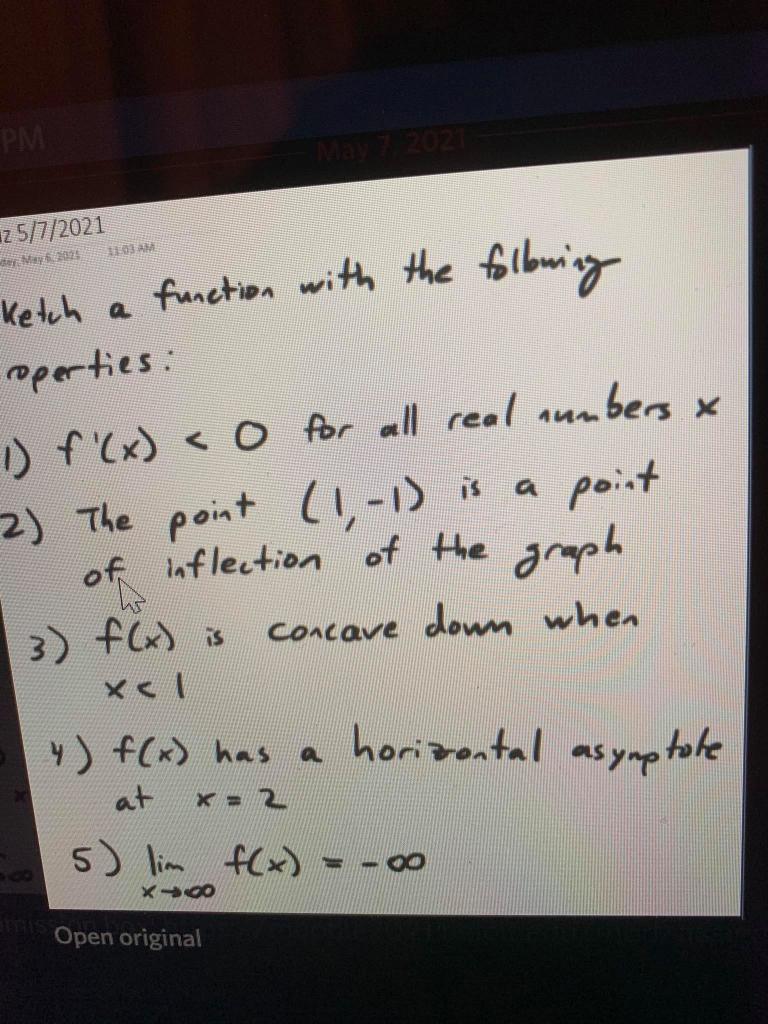 PM
May 7, 2021
iz 5/7/2021
day, May 6, 2021 11:03 AM
ketch a function with the following
roperties:
1) f'(x) < 0 for all real numbers x
2) The point (1,-1) is a point
of inflection of the graph
3) f(x) is concave down when
x < 1
4) f(x) has a horizontal asymptote
at x = 2
5) lim f(x) = -∞
x→∞
Open original